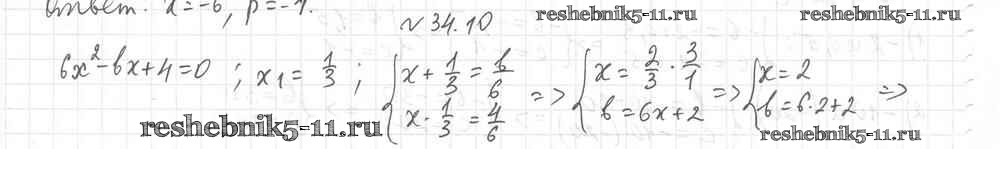 Ответ. α=-6, p=-1.
№ 34.10
reshebnik5-11.ru
reshebnik5-11.ru
6x²-bx+4=0 ; x₁= 1/3 ; { x+ 1/3 = b/6 => { x= 2/3 · 3/1 => { x=2 =>
x· 1/3 = 4/6 b=6x+2 b=6·2+2
reshebnik5-11.ru
reshebnik5-11.ru